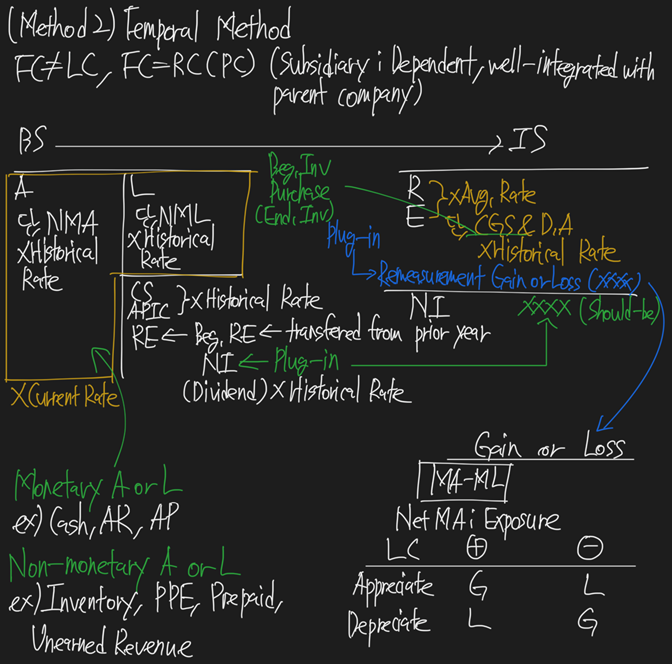 (Method 2) Temporal Method
FC≠LC, FC=RC(PC) (Subsidiary : Dependent, well-integrated with
parent company)
BS → IS
A
ct, NMA
X Historical
Rate
X Current Rate
L
ct, NML
X Historical
Rate
CS
APIC } X Historical Rate
RE ← Beg, RE ← transfered from prior year
NI ← Plug-in
(Dividend) X Historical Rate
Beg, Inv
Purchase
(End, Inv)
R
E } X Avg, Rate
CGS & D, A
X Historical Rate
Plug-in
Remeasurement Gain or Loss (XXX)
NI XXXX (Should-be)
Monetary A or L
ex) Cash, AR, AP
Non-monetary A or L
ex) Inventory, PPE, Prepaid,
Unearned Revenue
Gain or Loss
MA-ML
Net MA : Exposure
LC ⊕ ⊖
Appreciate G L
Depreciate L G